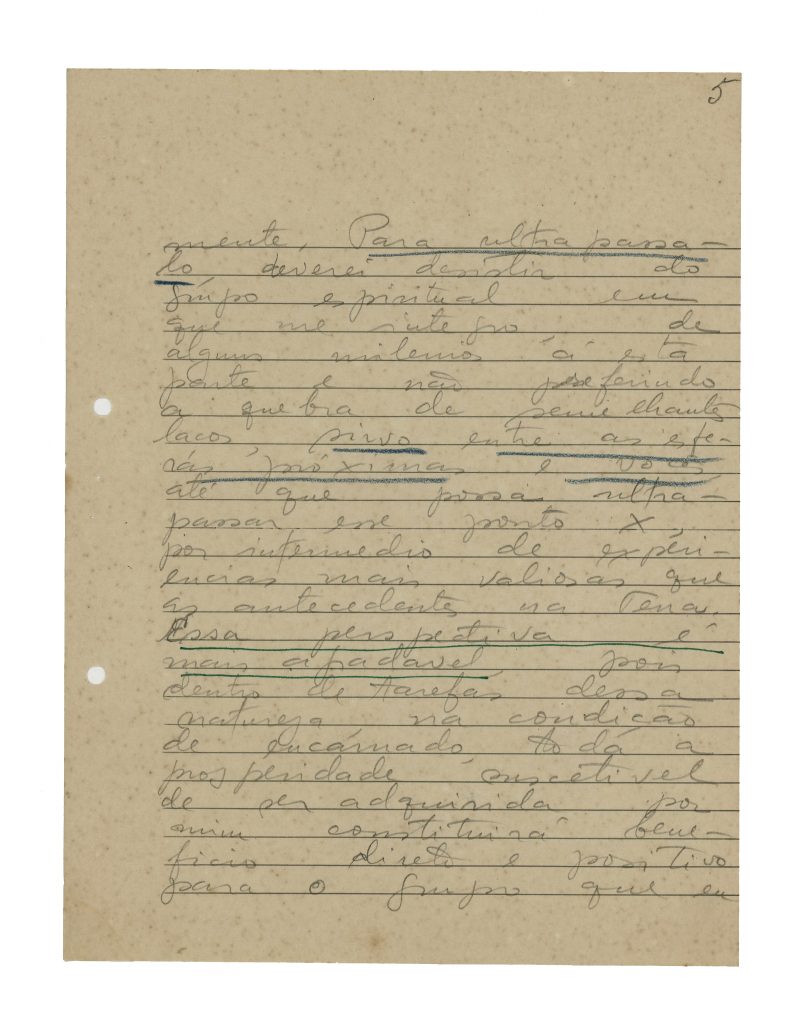 5
mente. Para ultrapassa-
lo deverei desistir do
grupo espiritual em
que me integro de
alguns milenios á esta
parte e não preferindo
a quebra de semelhantes
lacos, sirvo entre as esfe-
rás próximas e vocês,
até que possa ultra-
passar esse ponto X,
por intermedio de expéri-
encias mais valiosas que
as antecedentes na Terra.
Essa perspectiva é
mais agradavel, pois
dentro de tarefas dessa
natureza na condição
de encarnado toda a
prosperidade suscetivel
de ser adquirida por
mim constituirá bene-
ficio direto e positivo
para o grupo que eu